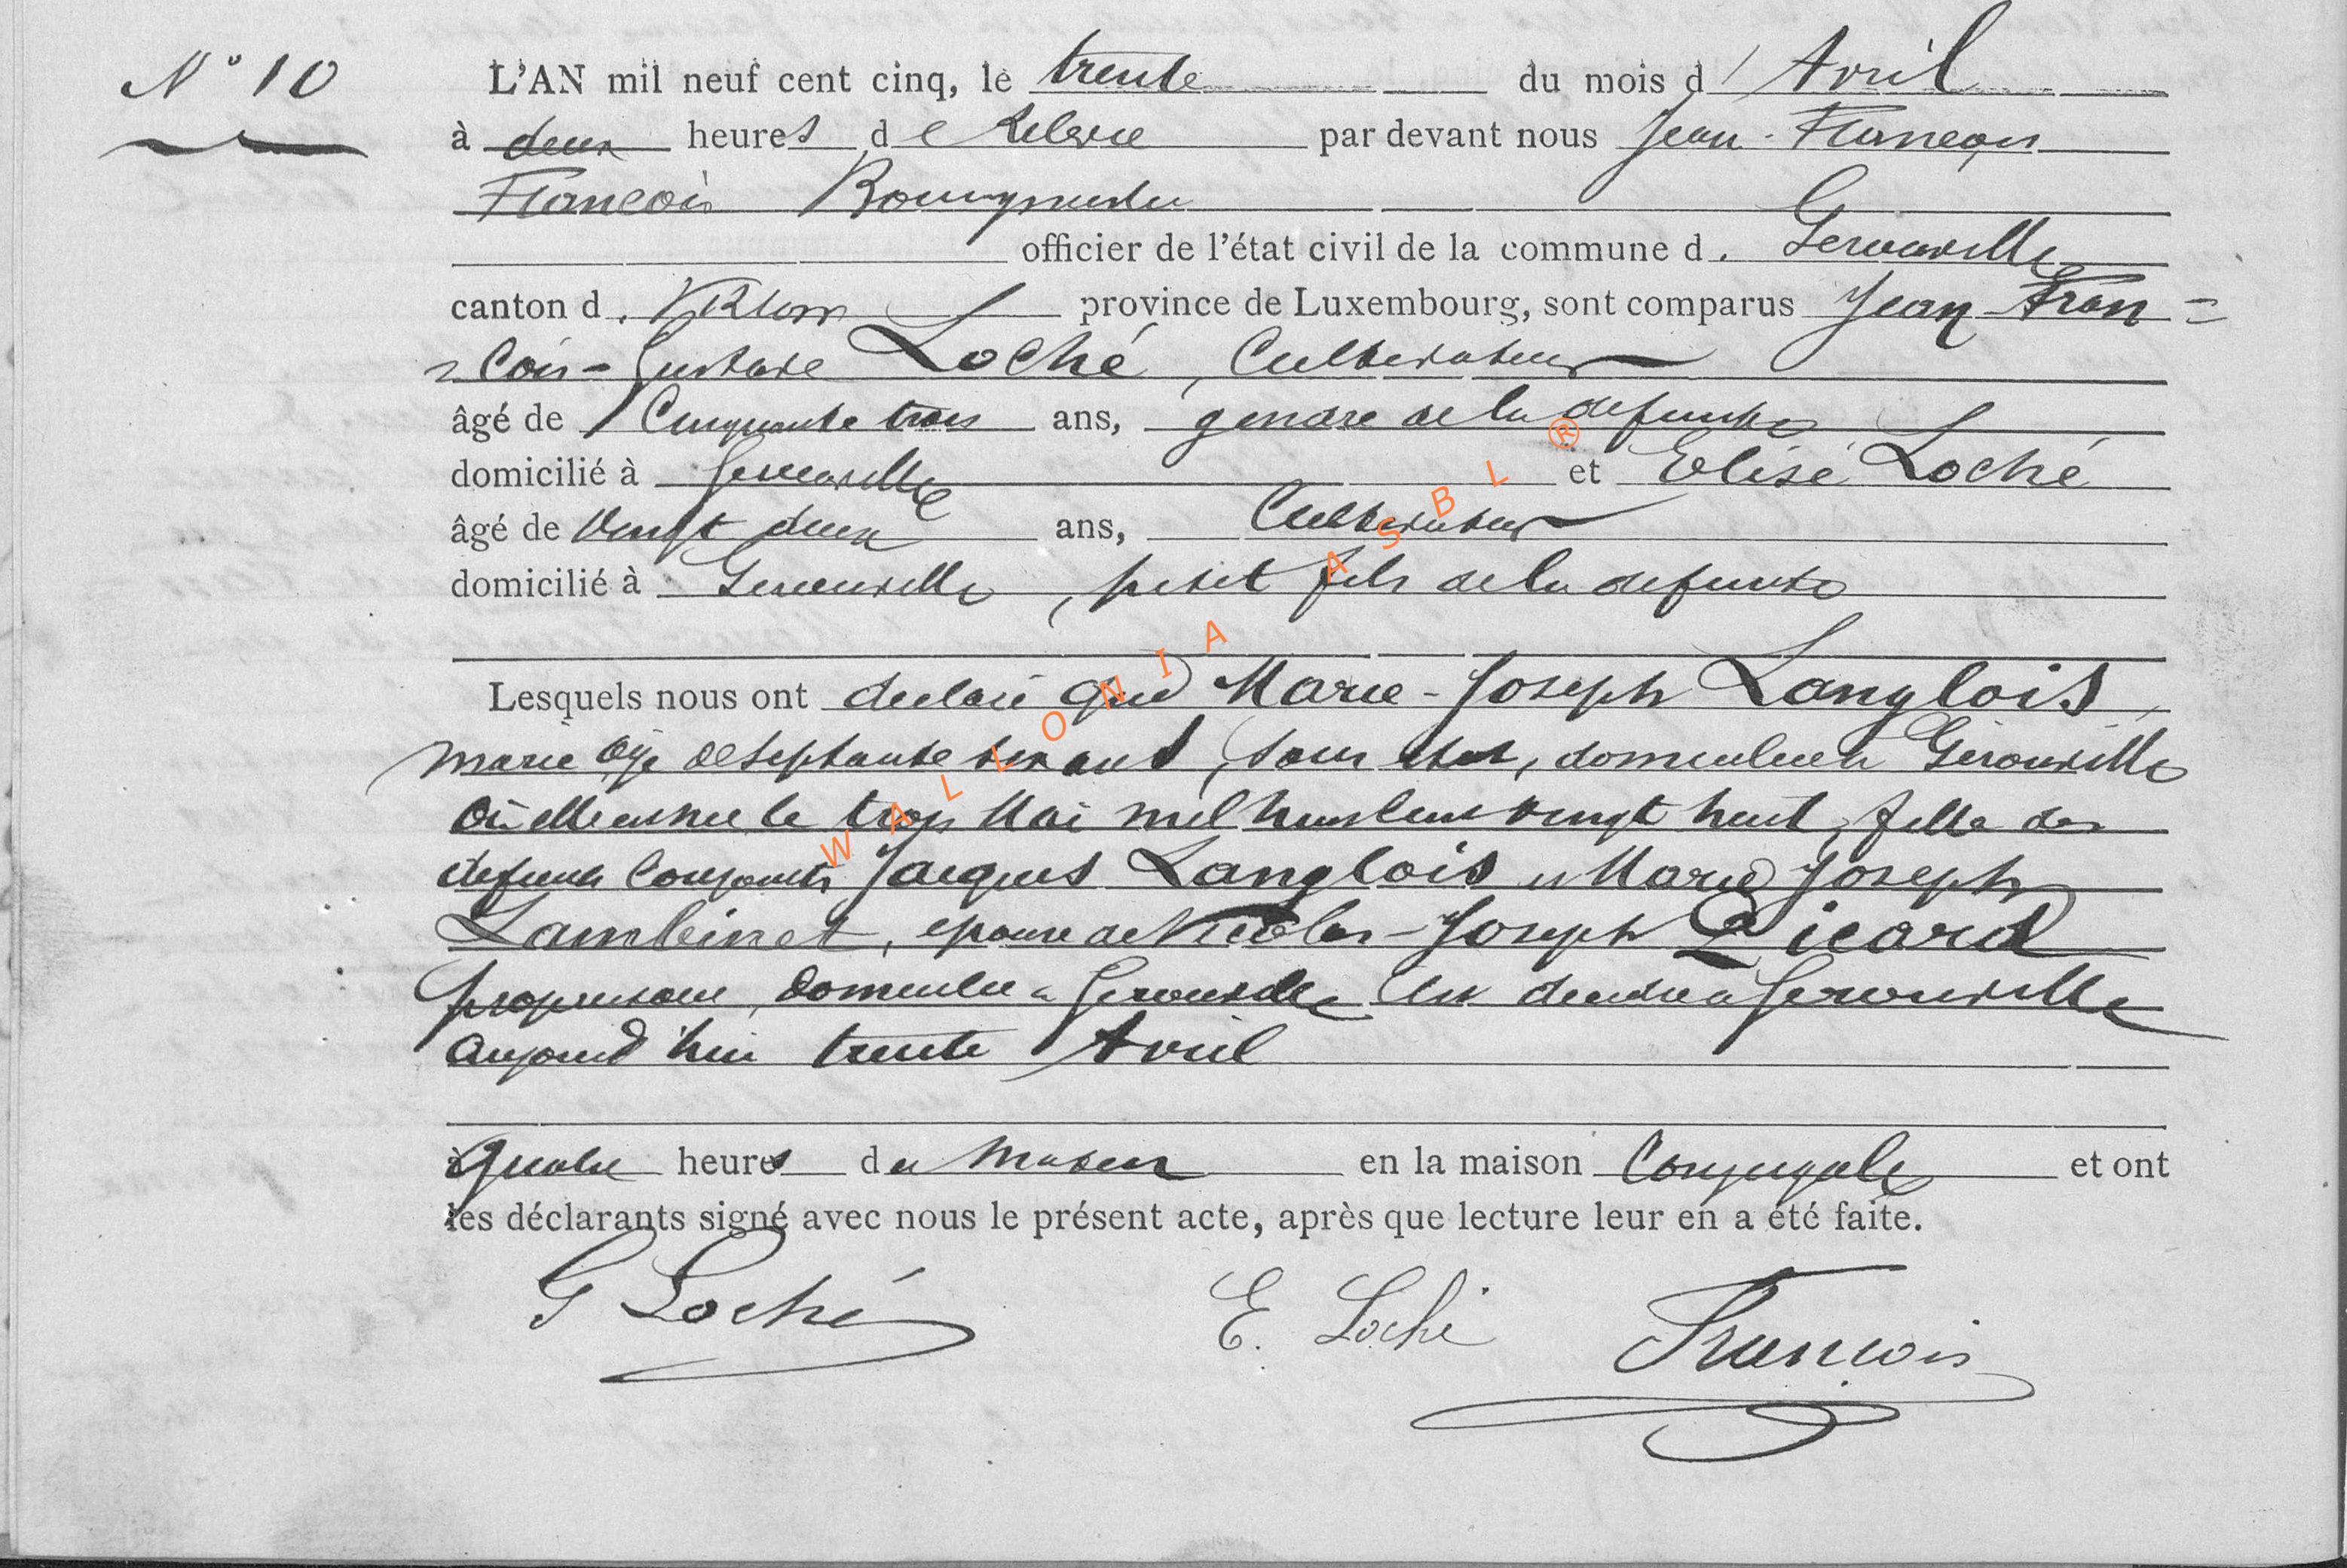 N° 10
L'AN mil neuf cent cinq, le trente du mois d'Avril
à deux heures de Relevée par devant nous Jean-François
François Bourgmestre
officier de l'état civil de la commune d. Gérouville
canton d. Virton province de Luxembourg, sont comparus Jean-Fran=
=çois-Gustave Loché, Cultivateur
âgé de Cinquante trois ans, gendre de la defunte
domicilié à Gérouville et Elisé Loché
âgé de Vingt deux ans, Cultivateur
domicilié à Gérouville, petit fils de la defunte
Lesquels nous ont déclaré que Marie-Joseph Langlois
marie âgé de septante ans, sans état, domiciliée à Gérouville
où elle est née le trois Mai mil huit cent vingt huit, fille des
defunts Conjoints Jacques Langlois et Marie Joseph
Lambinet, epouse de Nicolas-Joseph Picard
proprietaire, domicilié à Gerouville est decedée à Gerouville
aujourd'hui trente Avril
à quatre heures du matin en la maison Conjugale et ont
les déclarants signé avec nous le présent acte, après que lecture leur en a été faite.
G Loché E. Loché François
WALLONIA ASBL ®